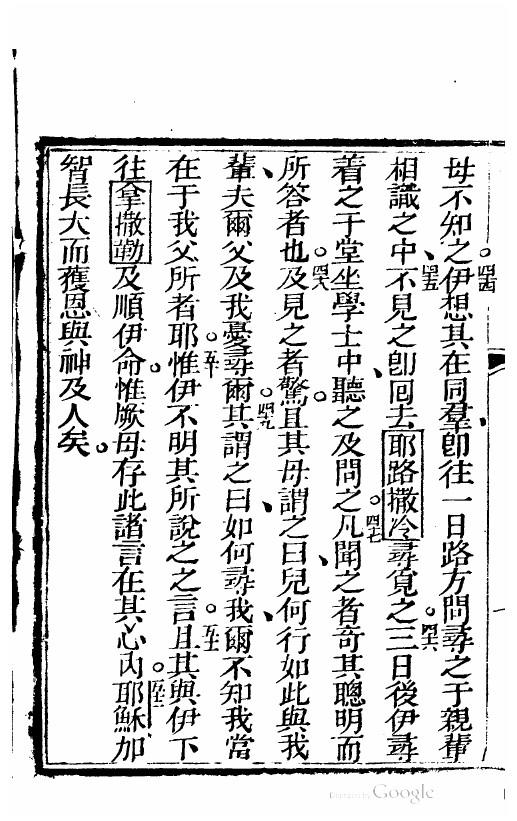 母不知之四四伊想其在同羣卽往一日路方問尋之于親輩
相識之中四五不見之卽囘去耶路撒冷尋覓之四六三日後伊尋
着之于堂坐學士中聽之及問之四七凡聞之者奇其聰明而
所答者也四八及見之者驚且其母謂之曰兒何行如此與我
輩夫爾父及我憂尋爾四九其謂之曰如何尋我爾不知我當
在于我父所者耶五十惟伊不明其所說之之言五一且其與伊下
往拿撒勒及順伊命惟厥母存此諸言在其心內五二耶穌加
智長大而獲恩與神及人矣
Digitized by Google